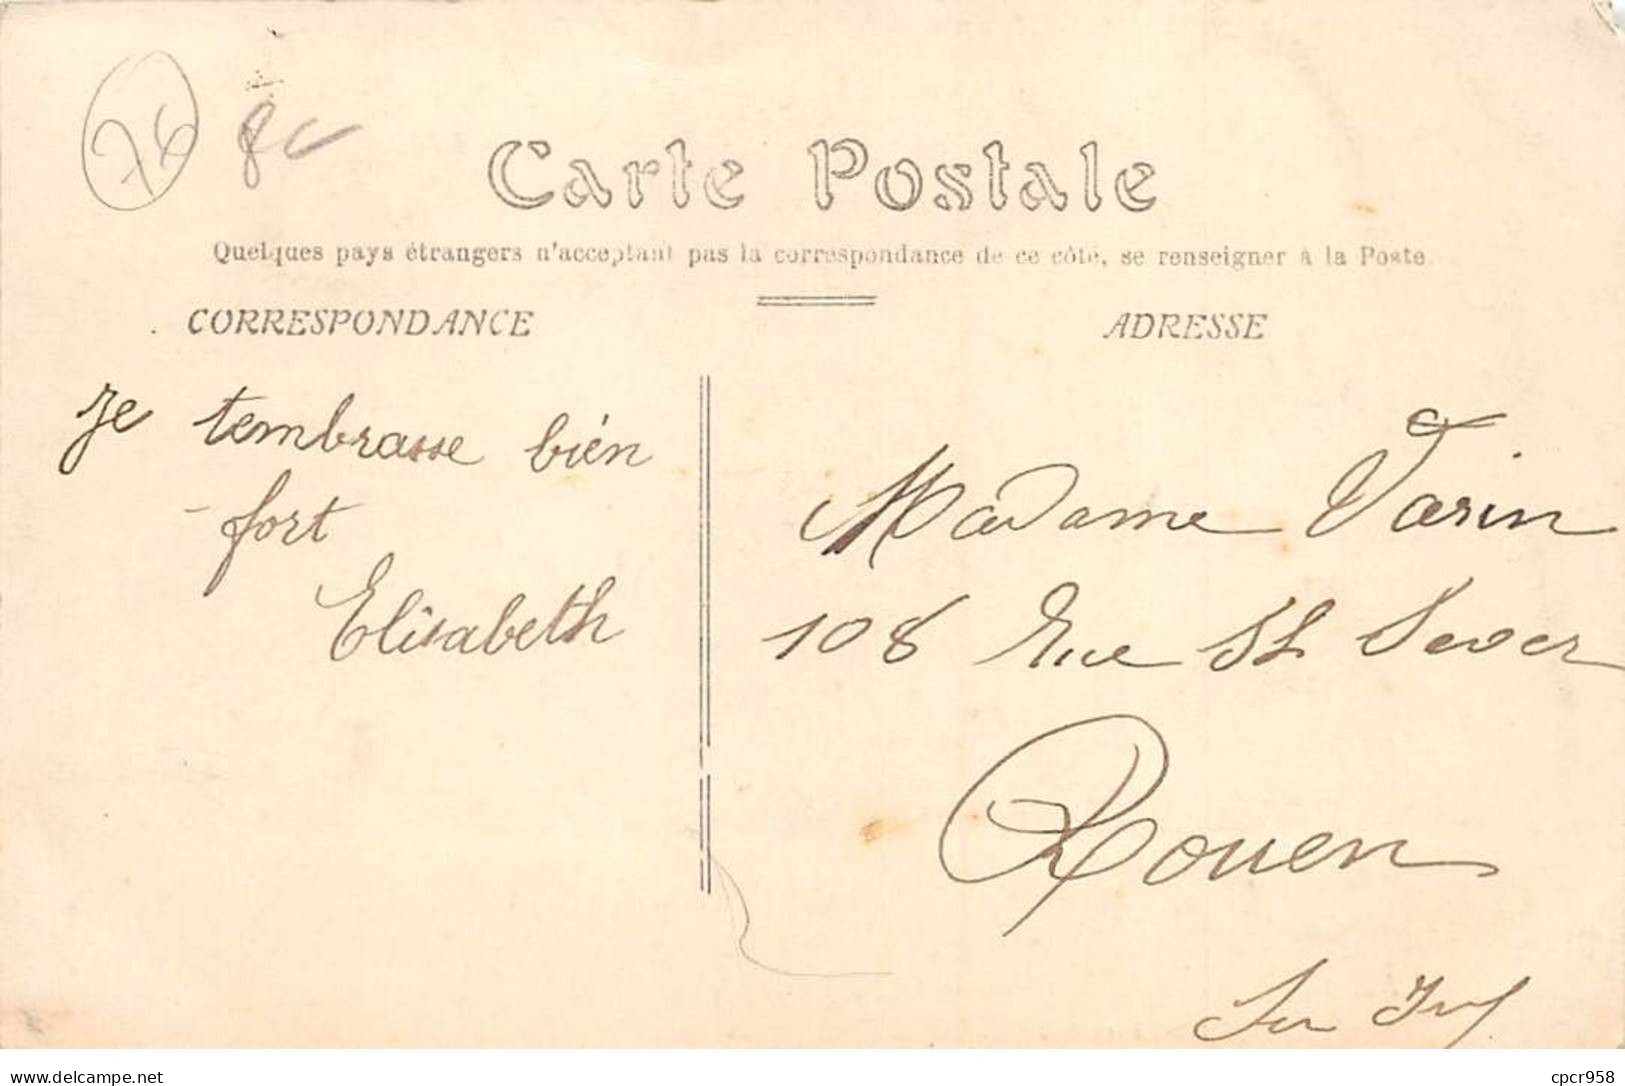 76
Carte Postale
Quelques pays étrangers n'acceptant pas la correspondance de ce côté, se renseigner à la Poste
CORRESPONDANCE
Je tembrasse bien
fort
Elisabeth
ADRESSE
Madame Varin
108 Rue St Sever
Rouen
Sn Inf
delcampe.net
cpcr958